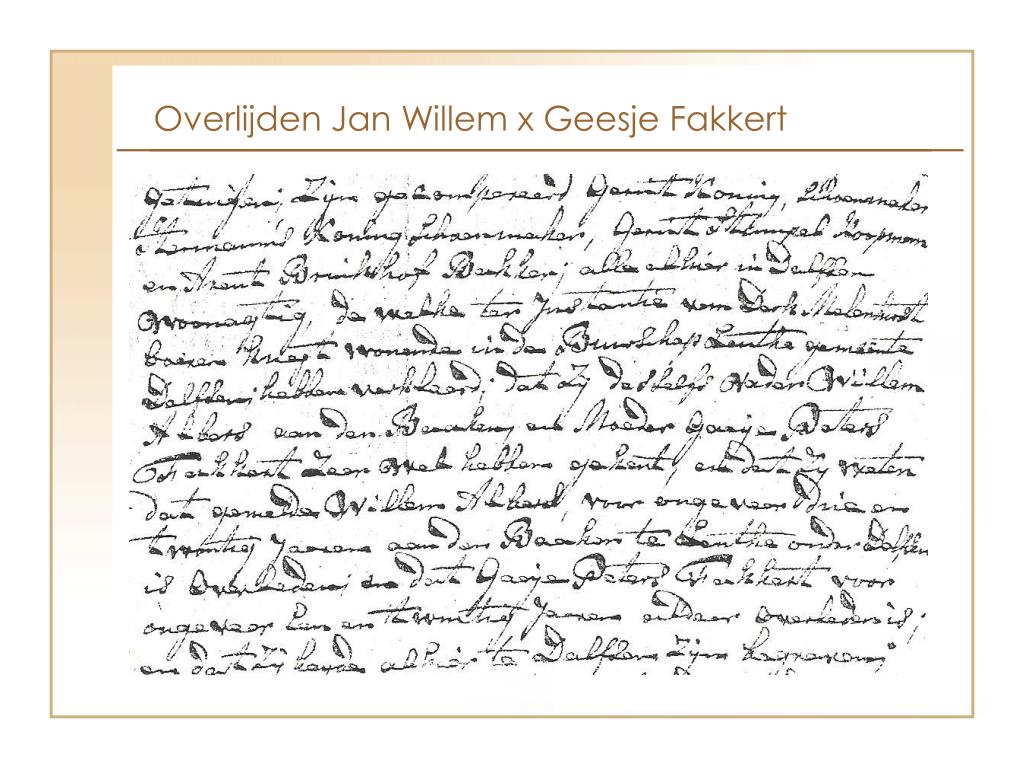 Overlijden Jan Willem x Geesje Fakkert
getuigen; Zijn gecompareerd Gerrit Koning, Schoenmaker
Hermannus Koning Schoenmaker, Gerrit Stempel Koopman
en Arent Brinkhof Bakker; alle alhier in Dalfsen
Woonagtig, de welke ter Instantie van Derk
boeren knegt wonende in de Buurschap Lenthe gemeente
Dalfsen; hebben verklaard; dat Zij deszelfs Vader Willem
Albers aan den Braaken, en Moeder Geesje Peters
Fakkert Zeer Wel hebben gekent, en dat Zij weten
dat gemelde Willem Albers, voor ongeveer drie en
twintig Jaaren aan den Braaken te Lenthe onder Dalfsen
is Overleden; en dat Geesje Peters Fakkert voor
ongeveer Een en twintig Jaaren aldaar overleden is;
en dat Zij beyde alhier te Dalfsen Zijn begraven;